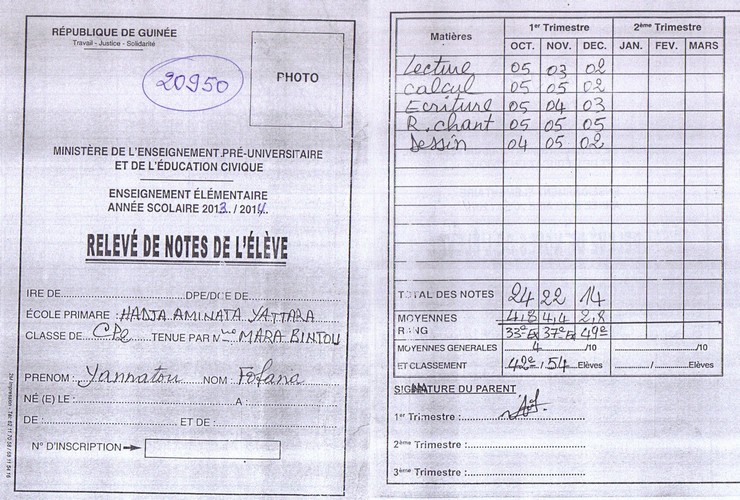 RÉPUBLIQUE DE GUINÉE
Travail - Justice - Solidarité
20950
PHOTO
MINISTÈRE DE L'ENSEIGNEMENT PRÉ-UNIVERSITAIRE
ET DE L'ÉDUCATION CIVIQUE
ENSEIGNEMENT ÉLÉMENTAIRE
ANNÉE SCOLAIRE 2013../2014.
RELEVÉ DE NOTES DE L'ÉLÈVE
IRE DE..............................DPE/DCE DE......................
ÉCOLE PRIMAIRE : HADJA AMINATA YATTARA
CLASSE DE TENUE PAR Mme MARA BINTOU
PRENOM : Yannatou NOM : Fofana
NÉ (E) LE : A :
DE ET DE :
N° D'INSCRIPTION
Matières 1er Trimestre 2ème Trimestre
OCT. NOV. DEC. JAN. FEV. MARS
Lecture 05 03 02
Calcul 05 05 02
Ecriture 05 04 03
R. chant 05 05 05
Dessin 04 05 02
TOTAL DES NOTES 24 22 14
MOYENNES 4,8 4,4 2,8
RANG 33e Ex 37e Ex 49e
MOYENNES GENERALES 4 /10 /10
ET CLASSEMENT 42e / 54 Elèves / Elèves
SIGNATURE DU PARENT
1er Trimestre :
2ème Trimestre :
3ème Trimestre :